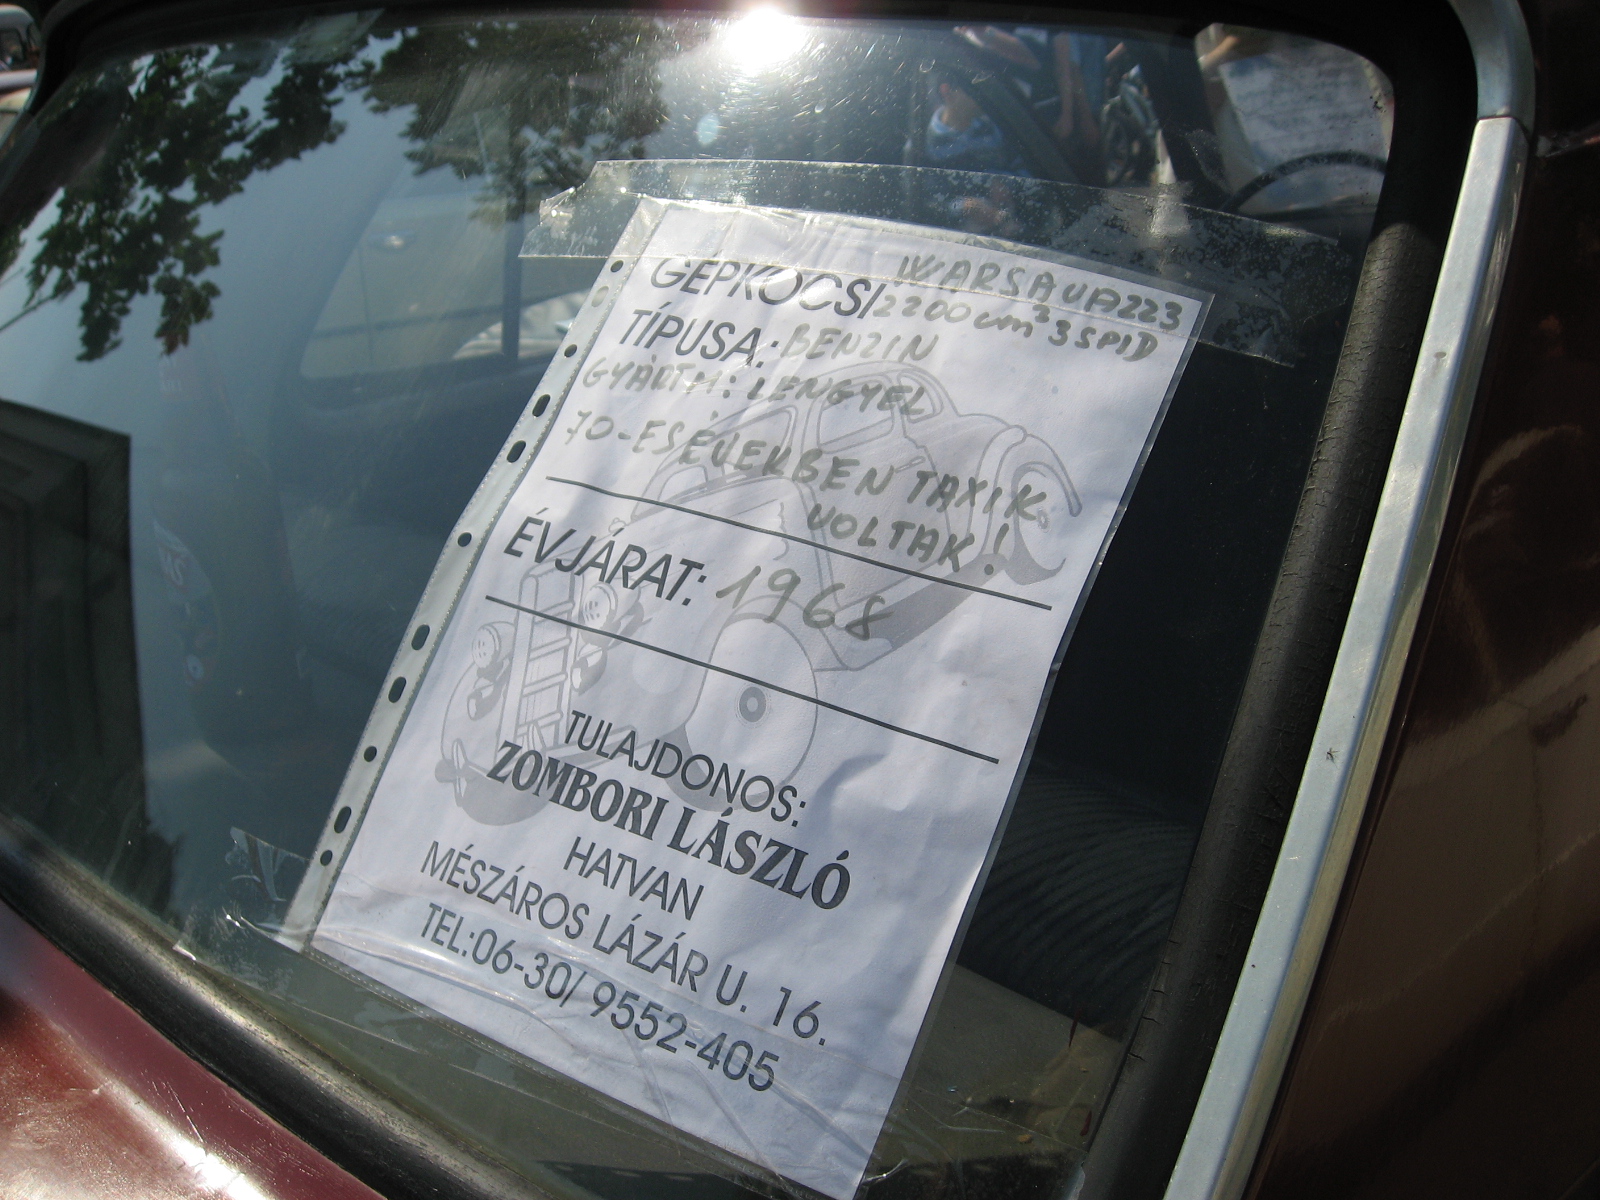 GÉPKOCSI WARSAVA223
TÍPUSA: 2200cm³ 3 SPID
BENZIN
GYÁRTM: LENGYEL
70-ES ÉVEKBEN TAXIK
VOLTAK!
ÉVJÁRAT: 1968
TULAJDONOS:
ZOMBORI LÁSZLÓ
HATVAN
MÉSZÁROS LÁZÁR U. 16.
TEL:06-30/ 9552-405